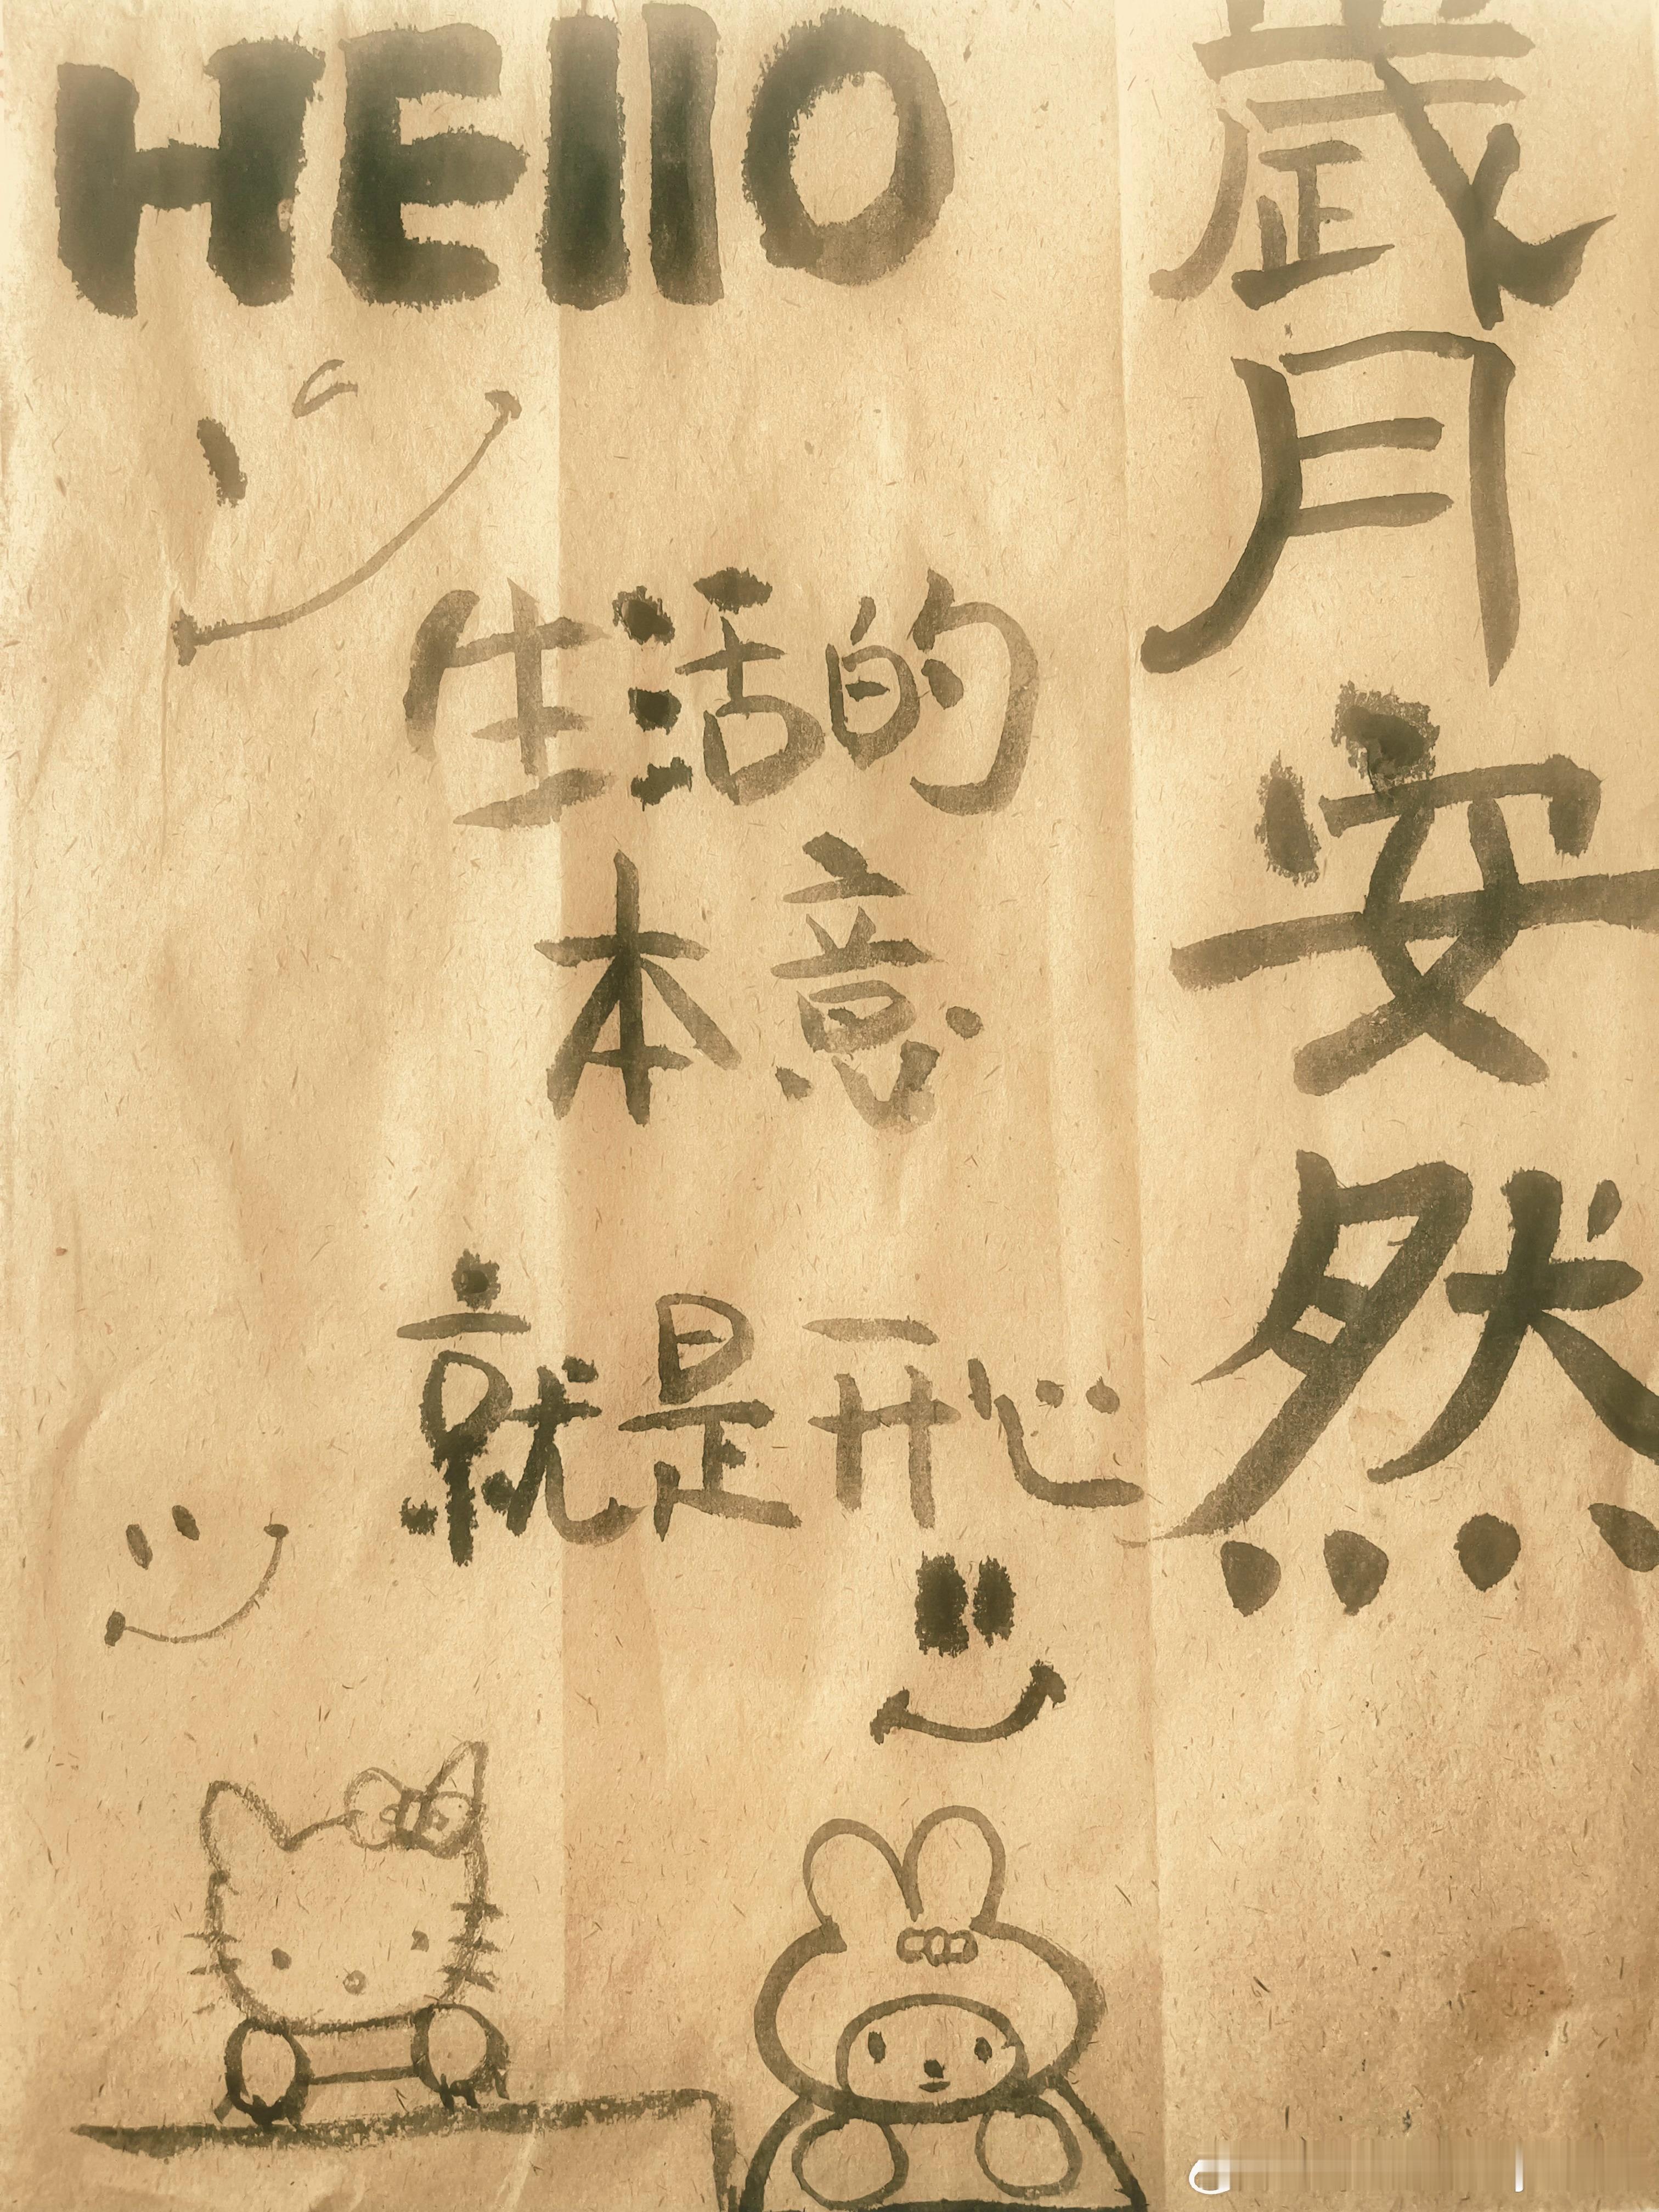 HEllO
歲月安然
生活的
本意
就是开心